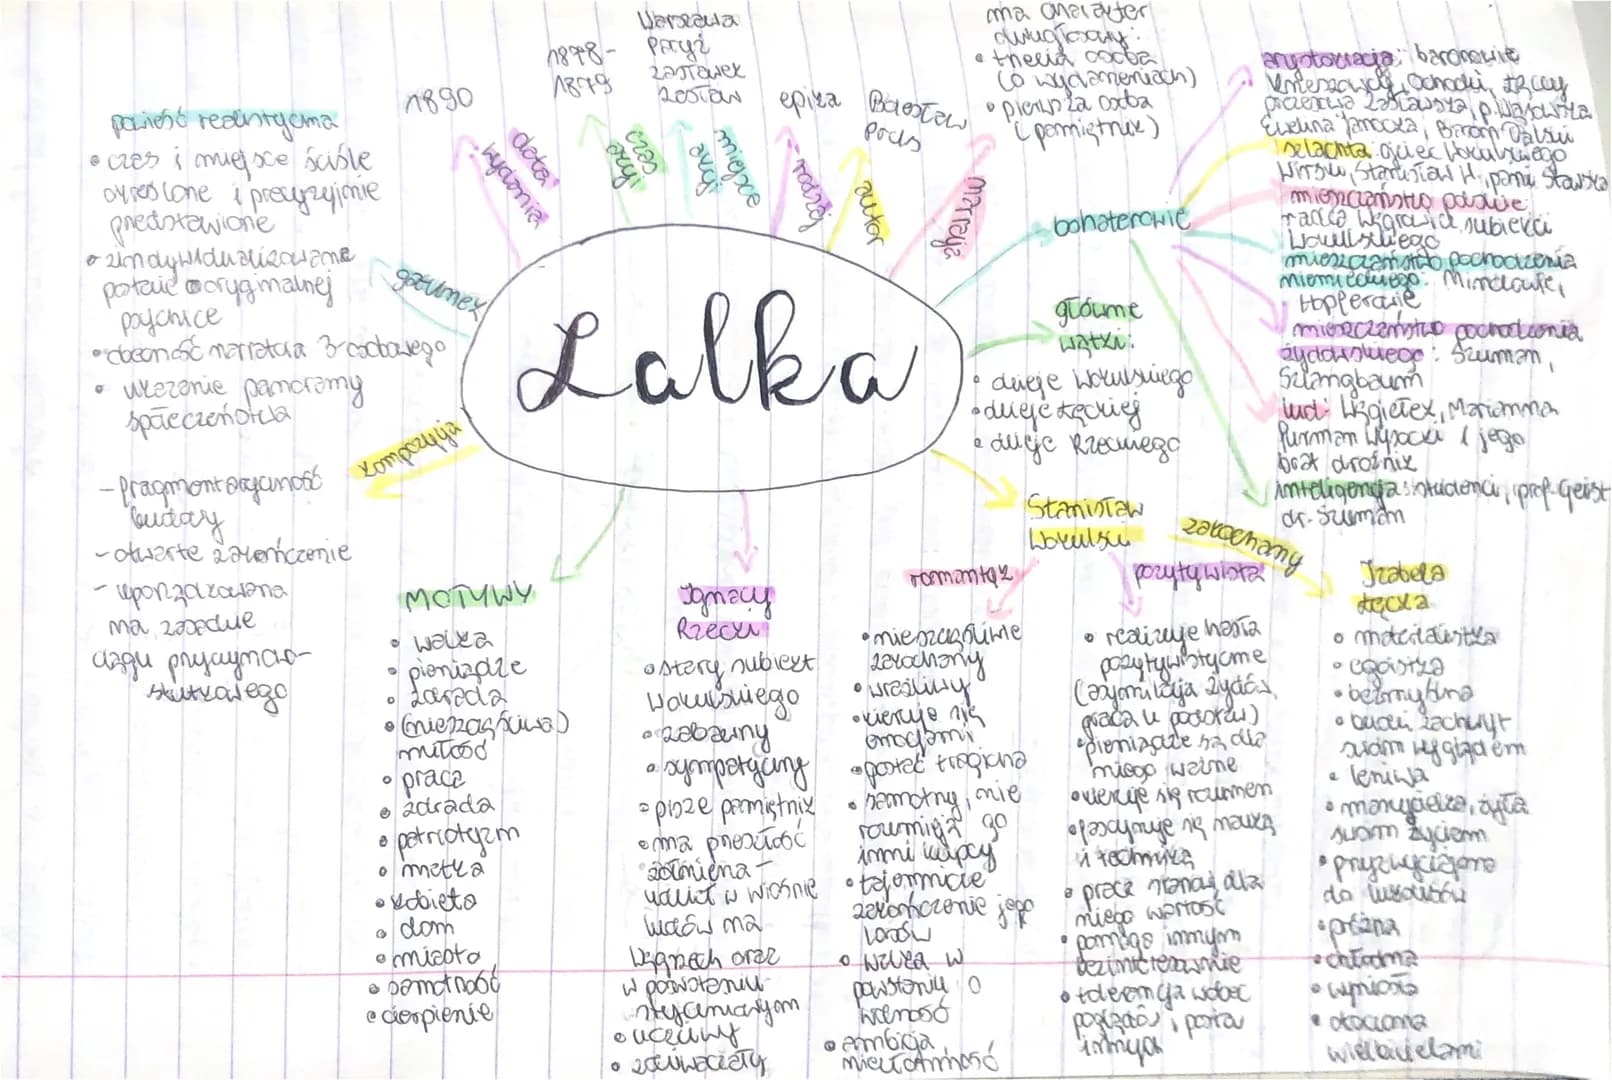 Lalka
gatunek
powieść realistyczna
• czas i miejsce ściśle
określone i precyzyjnie
przedstawione
• zindywidualizowane
postacie o oryginalnej
psychice
• obecność narratora 3-osobowego
• ukazanie panoramy
społeczeństwa
kompozycja
- fragmentaryczność
budowy
- otwarte zakończenie
- uporządkowana
na zasadzie
ciągu przyczynowo-
skutkowego
data
wydania
1890
czas
akcji
1878-
1879
miejsce
akcji
Warszawa
Paryż
Zasławek
Zasław
rodzaj
epika
autor
Bolesław
Prus
narracja
ma charakter
dwugłosowy:
• trzecia osoba
(o wydarzeniach)
• pierwsza osoba
(pamiętnik)
bohaterowie
arystokracja: baronowie
Krzeszowscy, Ochocki, Łęccy
prezesowa Zasławska, p. Wąsowska
Ewelina Janocka, Baron Dalski
szlachta: ojciec Wokulskiego
Wirski, Stanisław W., pani Stawska
mieszczaństwo polskie:
radca Węgrowicz, subiekci
Wokulskiego
mieszczaństwo pochodzenia
niemieckiego: Minclowie,
Hopferowie
mieszczaństwo pochodzenia
żydowskiego: Szuman,
Szlangbaum
lud: Węgiełek, Marianna
Furman Wysocki i jego
brat dróżnik
inteligencja: studenci, prof. Geist
dr. Szuman
główne
wątki:
• dzieje Wokulskiego
• dzieje Łęckiej
• dzieje Rzeckiego
Stanisław
Wokulski
zakochany
MOTYWY
• walka
• pieniądze
• zdrada
• (nieszczęśliwa)
miłość
• praca
• zdrada
• patriotyzm
• matka
• kobieta
• dom
• miasto
• samotność
• cierpienie
Ignacy
Rzecki
• stary subiekt
Wokulskiego
• zabawny
• sympatyczny
• pisze pamiętnik
• ma przeszłość
żołnierza -
walczył w wiośnie
ludów na
Węgrzech oraz
w powstaniu
styczniowym
• uczciwy
• zdziwaczały
romantyk
• nieszczęśliwie
zakochany
• wrażliwy
• kieruje się
emocjami
• postać tragiczna
• samotny, nie
rozumieją go
inni kupcy
• tajemnicze
zakończenie jego
losów
• walka w
powstaniu o
wolność
• ambicja,
niezłomność
pozytywista
• realizuje hasła
pozytywistyczne
(asymilacja żydów,
praca u podstaw)
• pieniądze są dla
niego ważne
• kieruje się rozumem
• fascynuje się nauką
i techniką
• praca stanowi dla
niego wartość
• pomaga innym
bezinteresownie
• tolerancja wobec
poglądów, postaw
innych
Izabela
Łęcka
• materialistka
• egoistka
• bezmyślna
• budzi zachwyt
swoim wyglądem
• leniwa
• marzycielka, żyła
swoim życiem
• przyzwyczajona
do luksusów
• próżna
• chłodna
• wyniosła
• otoczona
wielbicielami